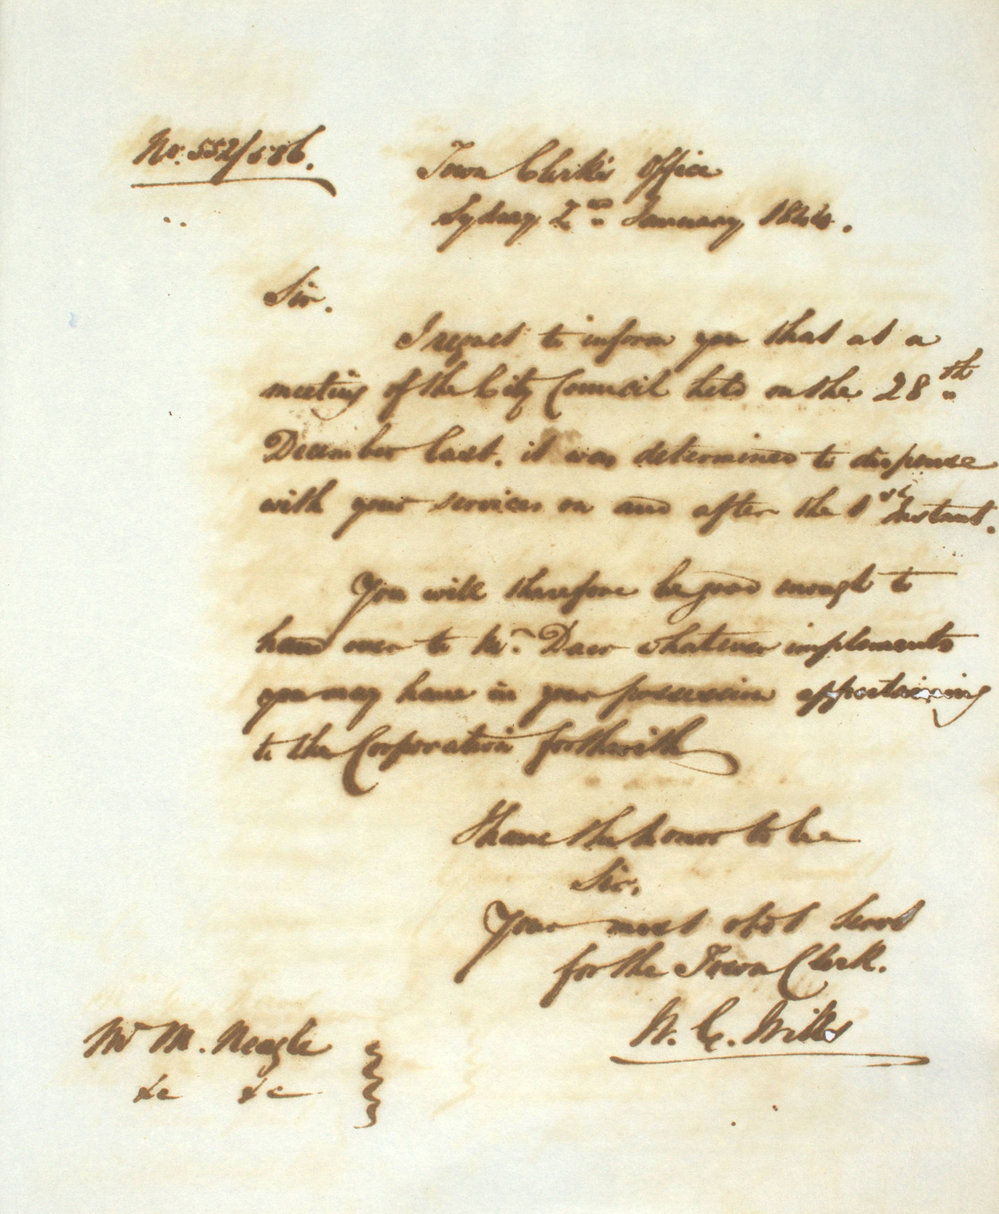 No. 552/586.
Town Clerk's Office
Sydney 2nd January 1844.
Sir.
I regret to inform you that at a
meeting of the City Council held on the 28th
December last. it was determined to dispense
with your services on and after the 1st Instant.
You will therefore be good enough to
hand over to Mr. Daw whatever implements
you may have in your possession appertaining
to the Corporation forthwith
I have the honor to be
Sir,
Your most obdt servt
for the Town Clerk.
W. C. Wills
Mr M. Neagle
&c &c